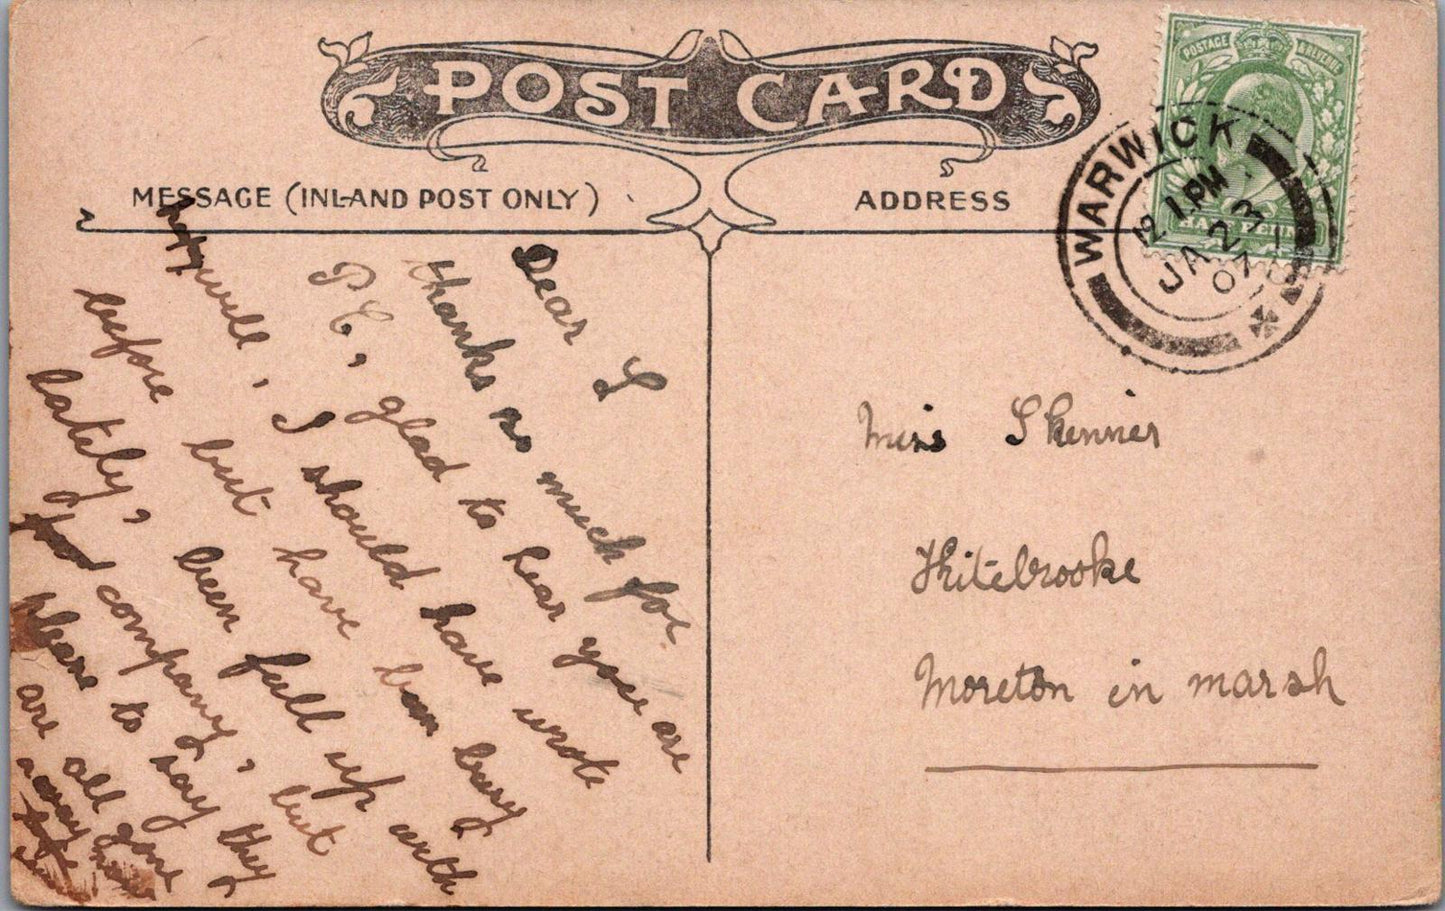 POST CARD
MESSAGE (INLAND POST ONLY)
ADDRESS
POSTAGE & REVENUE
HALF PENNY
WARWICK
12 1 PM
JA 23
07
Dear L
thanks so much for
P C, glad to hear you are
happy well, I should have wrote
before but have been busy
lately, been full up with
company, but
please to say they
are all gone
away now
Miss Skinner
Kitebrooke
Moreton in marsh